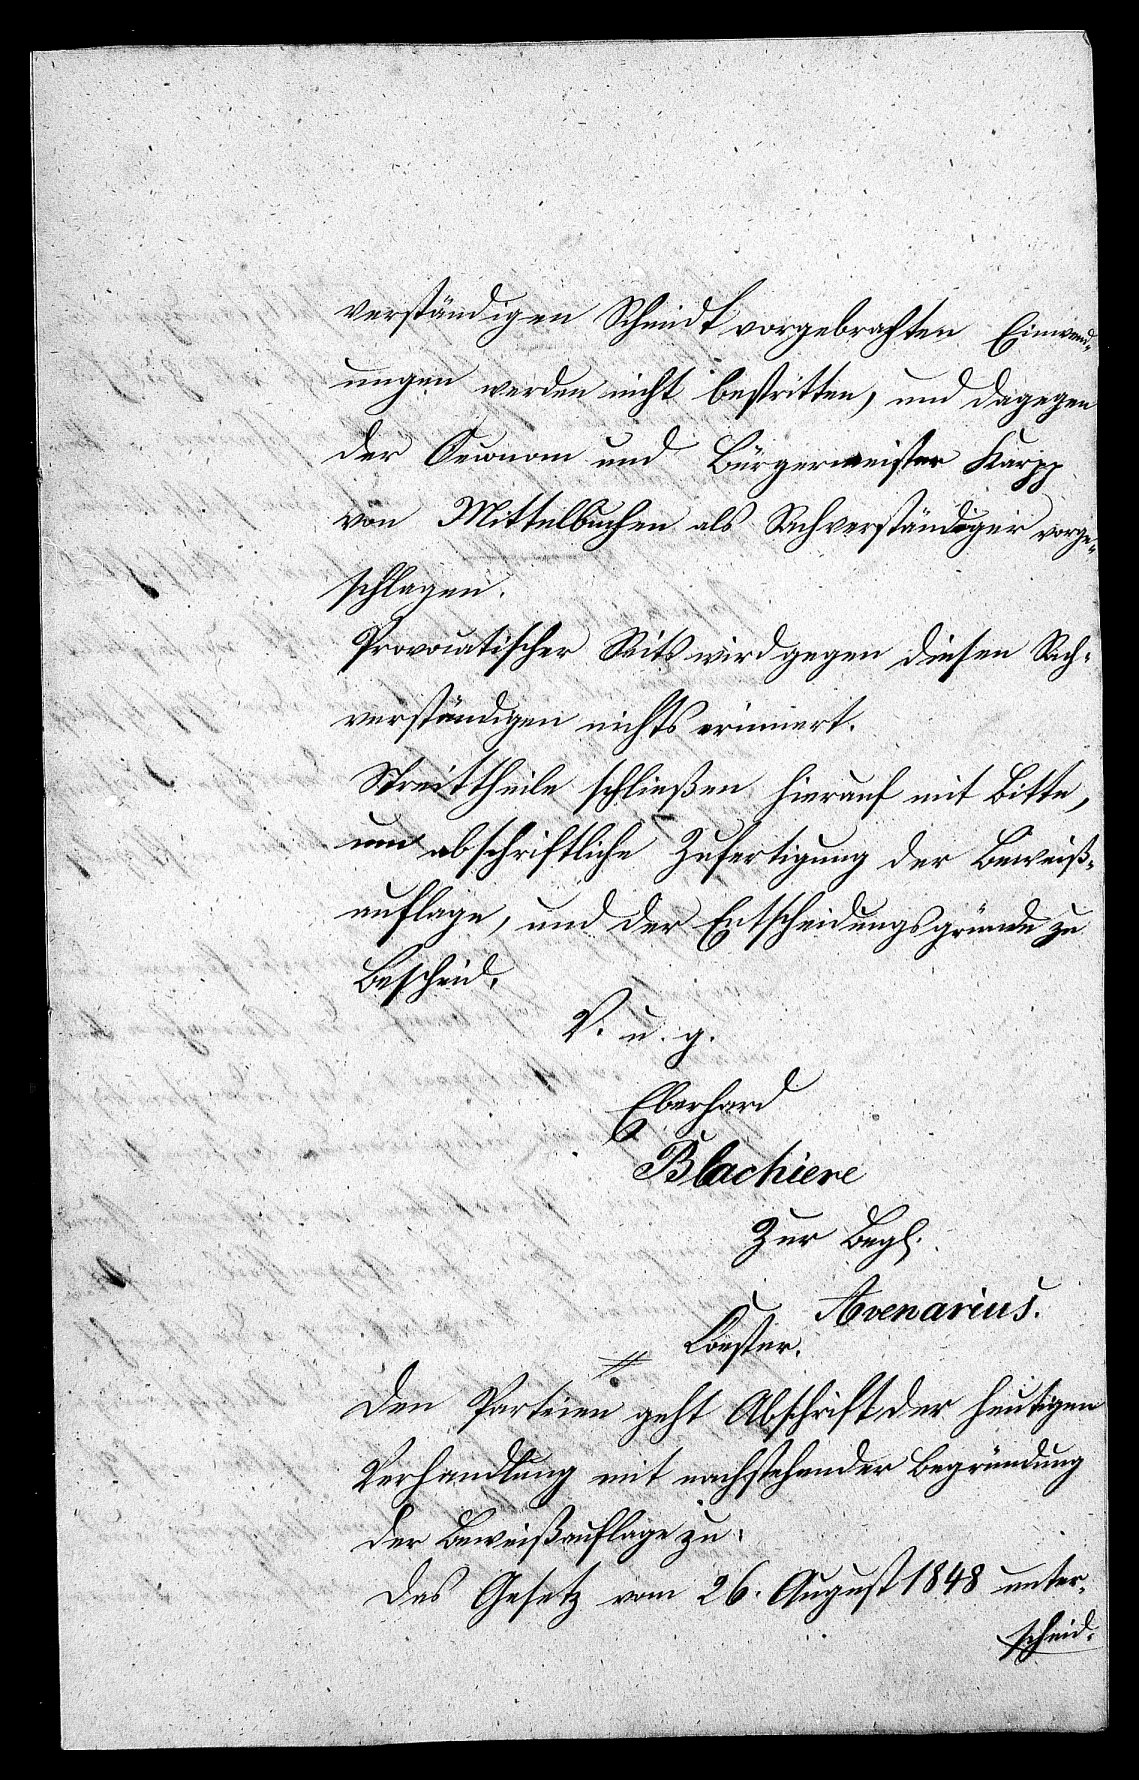 verständigen Schmidt vorgebrachten Einwend-
ungen werden nicht bestritten, und dagegen
der Oeconom und Bürgermeister Karpp
von Mittelbuchen als Sachverständiger vorge-
schlagen.
Provocatischer Seits wird gegen diesen Sach-
verständigen nichts erinnert.
Streittheile schließen hierauf mit Bitte,
um abschriftliche Zufertigung der Beweiß-
auflage, und der Entscheidungsgründe zu
Bescheid.
V. u. g.
Eberhard
Blachiere
Zur Begl.
Avenarius.
Coester.
Den Parteien geht Abschrift der heutigen
Verhandlung mit nachstehender Begründung
der Beweißauflage zu:
Das Gesetz vom 26. August 1848 unter-
scheid.